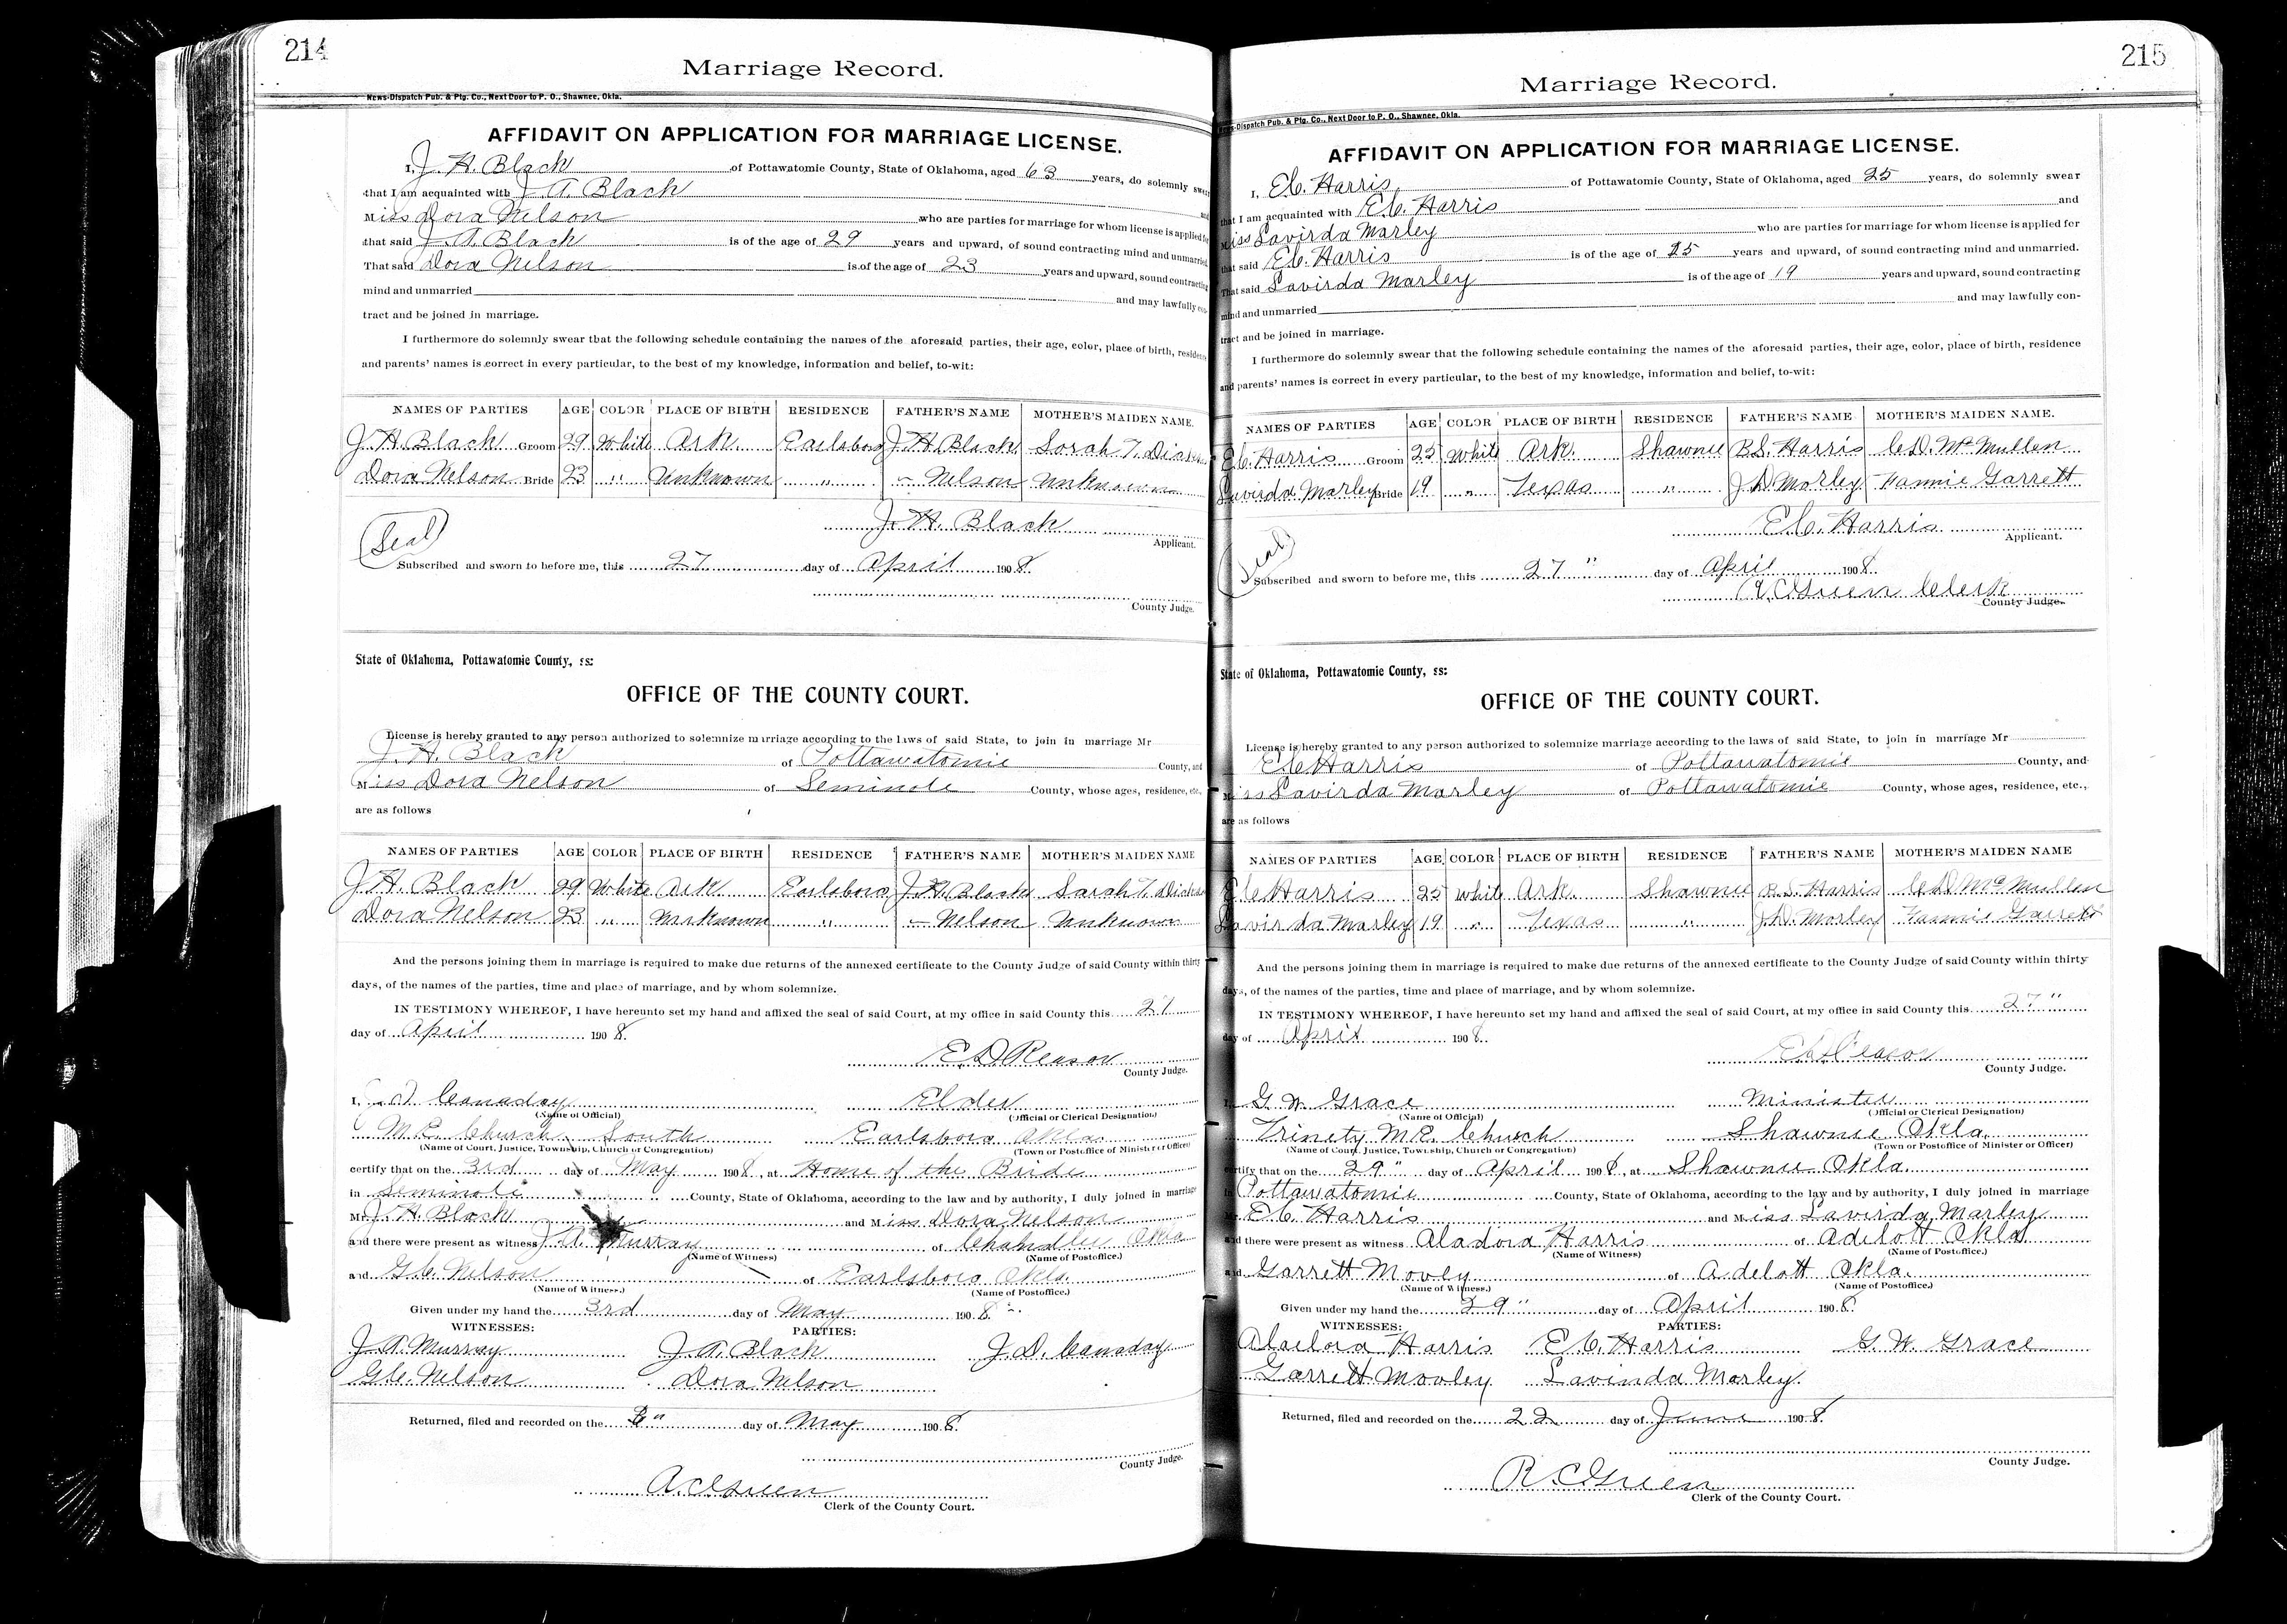 214
Marriage Record.
News-Dispatch Pub. & Ptg. Co., Next Door to P. O., Shawnee, Okla.
AFFIDAVIT ON APPLICATION FOR MARRIAGE LICENSE.
I, J. H. Black of Pottawatomie County, State of Oklahoma, aged 63 years, do solemnly swear
that I am acquainted with J. A. Black and
Miss Dora Nelson who are parties for marriage for whom license is applied for
that said J. A. Black is of the age of 29 years and upward, of sound contracting mind and unmarried.
That said Dora Nelson is of the age of 23 years and upward, sound contracting
mind and unmarried and may lawfully con-
tract and be joined in marriage.
I furthermore do solemnly swear that the following schedule containing the names of the aforesaid parties, their age, color, place of birth, residence
and parents' names is correct in every particular, to the best of my knowledge, information and belief, to-wit:
NAMES OF PARTIES AGE COLOR PLACE OF BIRTH RESIDENCE FATHER'S NAME MOTHER'S MAIDEN NAME.
J. A. Black Groom 29 White Ark. Earlsboro J. H. Black Sarah T.
Dora Nelson Bride 23 " Unknown " – Nelson Unknown
J. H. Black
Applicant.
Seal
Subscribed and sworn to before me, this 27 day of April 1908.
County Judge.
State of Oklahoma, Pottawatomie County, ss:
OFFICE OF THE COUNTY COURT.
License is hereby granted to any person authorized to solemnize marriage according to the laws of said State, to join in marriage Mr
J. A. Black of Pottawatomie County, and
Miss Dora Nelson of Seminole County, whose ages, residence, etc.,
are as follows
NAMES OF PARTIES AGE COLOR PLACE OF BIRTH RESIDENCE FATHER'S NAME MOTHER'S MAIDEN NAME
J. A. Black 29 White Ark Earlsboro J. H. Black Sarah T.
Dora Nelson 23 " Unknown " – Nelson Unknown
And the persons joining them in marriage is required to make due returns of the annexed certificate to the County Judge of said County within thirty
days, of the names of the parties, time and place of marriage, and by whom solemnize.
IN TESTIMONY WHEREOF, I have hereunto set my hand and affixed the seal of said Court, at my office in said County this 27
day of April 1908.
E. D. Reasor
County Judge.
I, J. D. Canaday Elder
(Name of Official) (Official or Clerical Designation)
M. E. Church South Earlsboro Okla.
(Name of Court, Justice, Township, Church or Congregation) (Town or Postoffice of Minister or Officer)
certify that on the 3rd day of May 1908, at Home of the Bride
in Seminole County, State of Oklahoma, according to the law and by authority, I duly joined in marriage
Mr. J. A. Black and Miss Dora Nelson
and there were present as witness J. A. Murray of Chandler Okla
(Name of Witness) (Name of Postoffice.)
and G. C. Nelson of Earlsboro Okla.
(Name of Witness.) (Name of Postoffice.)
Given under my hand the 3rd day of May 1908.
WITNESSES: PARTIES:
J. A. Murray J. A. Black J. D. Canaday
G. C. Nelson Dora Nelson
Returned, filed and recorded on the 6" day of May 1908.
County Judge.
R. C. Green
Clerk of the County Court.
215
Marriage Record.
News-Dispatch Pub. & Ptg. Co., Next Door to P. O., Shawnee, Okla.
AFFIDAVIT ON APPLICATION FOR MARRIAGE LICENSE.
I, E. C. Harris of Pottawatomie County, State of Oklahoma, aged 25 years, do solemnly swear
that I am acquainted with E. C. Harris and
Miss Lavirda Marley who are parties for marriage for whom license is applied for
that said E. C. Harris is of the age of 25 years and upward, of sound contracting mind and unmarried.
That said Lavirda Marley is of the age of 19 years and upward, sound contracting
mind and unmarried and may lawfully con-
tract and be joined in marriage.
I furthermore do solemnly swear that the following schedule containing the names of the aforesaid parties, their age, color, place of birth, residence
and parents' names is correct in every particular, to the best of my knowledge, information and belief, to-wit:
NAMES OF PARTIES AGE COLOR PLACE OF BIRTH RESIDENCE FATHER'S NAME MOTHER'S MAIDEN NAME.
E. C. Harris Groom 25 White Ark. Shawnee B. S. Harris C. D. McMullen
Lavirda Marley Bride 19 " Texas " J. D. Morley Fannie Garrett
E. C. Harris
Applicant.
Seal
Subscribed and sworn to before me, this 27" day of April 1908.
R. C. Green Clerk
County Judge.
State of Oklahoma, Pottawatomie County, ss:
OFFICE OF THE COUNTY COURT.
License is hereby granted to any person authorized to solemnize marriage according to the laws of said State, to join in marriage Mr
E. C. Harris of Pottawatomie County, and
Miss Lavirda Marley of Pottawatomie County, whose ages, residence, etc.,
are as follows
NAMES OF PARTIES AGE COLOR PLACE OF BIRTH RESIDENCE FATHER'S NAME MOTHER'S MAIDEN NAME
E. C. Harris 25 White Ark. Shawnee B. S. Harris C. D. McMullen
Lavirda Marley 19 " Texas " J. D. Morley Fannie Garrett
And the persons joining them in marriage is required to make due returns of the annexed certificate to the County Judge of said County within thirty
days, of the names of the parties, time and place of marriage, and by whom solemnize.
IN TESTIMONY WHEREOF, I have hereunto set my hand and affixed the seal of said Court, at my office in said County this 27"
day of April 1908.
E. D. Reasor
County Judge.
I, G. W. Grace Minister
(Name of Official) (Official or Clerical Designation)
Trinety M. E. Church Shawnee Okla.
(Name of Court, Justice, Township, Church or Congregation) (Town or Postoffice of Minister or Officer)
certify that on the 29" day of April 1908, at Shawnee Okla.
in Pottawatomie County, State of Oklahoma, according to the law and by authority, I duly joined in marriage
Mr. E. C. Harris and Miss Lavirda Marley
and there were present as witness Aladora Harris of Adelott Okla
(Name of Witness) (Name of Postoffice.)
and Garrett Movley of Adelott Okla.
(Name of Witness.) (Name of Postoffice.)
Given under my hand the 29" day of April 1908.
WITNESSES: PARTIES:
Aladora Harris E. C. Harris G. W. Grace
Garrett Movley Lavinda Morley.
Returned, filed and recorded on the 22 day of June 1908.
County Judge.
R. C. Green
Clerk of the County Court.